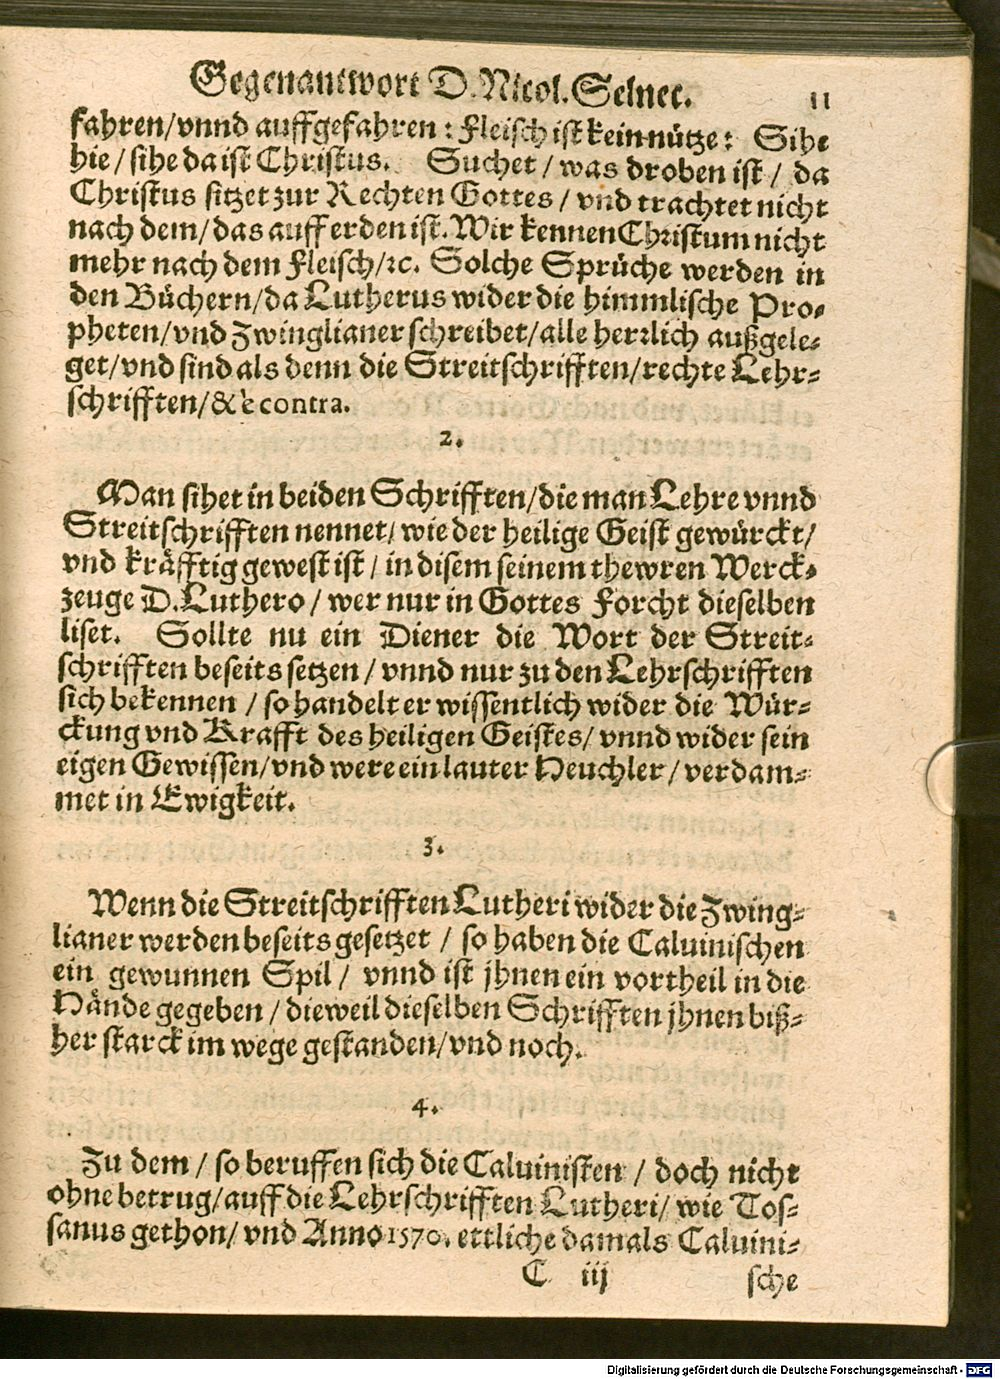 Gegenantwort D. Nicol. Selnec. 11
fahren/vnnd auffgefahren: Fleisch ist kein nütze: Sihe
hie/sihe da ist Christus. Suchet/was droben ist/da
Christus sitzet zur Rechten Gottes/vnd trachtet nicht
nach dem/das auff erden ist. Wir kennen Christum nicht
mehr nach dem Fleisch/ꝛc. Solche Sprüche werden in
den Büchern/da Lutherus wider die himmlische Pro-
pheten/vnd Zwinglianer schreibet/alle herꝛlich außgele-
get/vnd sind als denn die Streitschrifften/rechte Lehr-
schrifften/& è contra.
2.
Man sihet in beiden Schrifften/die man Lehre vnnd
Streitschrifften nennet/wie der heilige Geist gewürckt/
vnd kräfftig gewest ist/in disem seinem thewren Werck-
zeuge D. Luthero/wer nur in Gottes Forcht dieselben
liset. Sollte nu ein Diener die Wort der Streit-
schrifften beseits setzen/vnnd nur zu den Lehrschrifften
sich bekennen/so handelt er wissentlich wider die Wür-
ckung vnd Krafft des heiligen Geistes/vnnd wider sein
eigen Gewissen/vnd were ein lauter Heuchler/verdam-
met in Ewigkeit.
3.
Wenn die Streitschrifften Lutheri wider die Zwing-
lianer werden beseits gesetzet/so haben die Caluinischen
ein gewunnen Spil/vnnd ist jhnen ein vortheil in die
Hände gegeben/dieweil dieselben Schrifften jhnen biß-
her starck im wege gestanden/vnd noch.
4.
Zu dem/so beruffen sich die Caluinisten/doch nicht
ohne betrug/auff die Lehrschrifften Lutheri/wie Tos-
sanus gethon/vnd Anno 1570. ettliche damals Caluini-
C iij sche
Digitalisierung gefördert durch die Deutsche Forschungsgemeinschaft - DFG